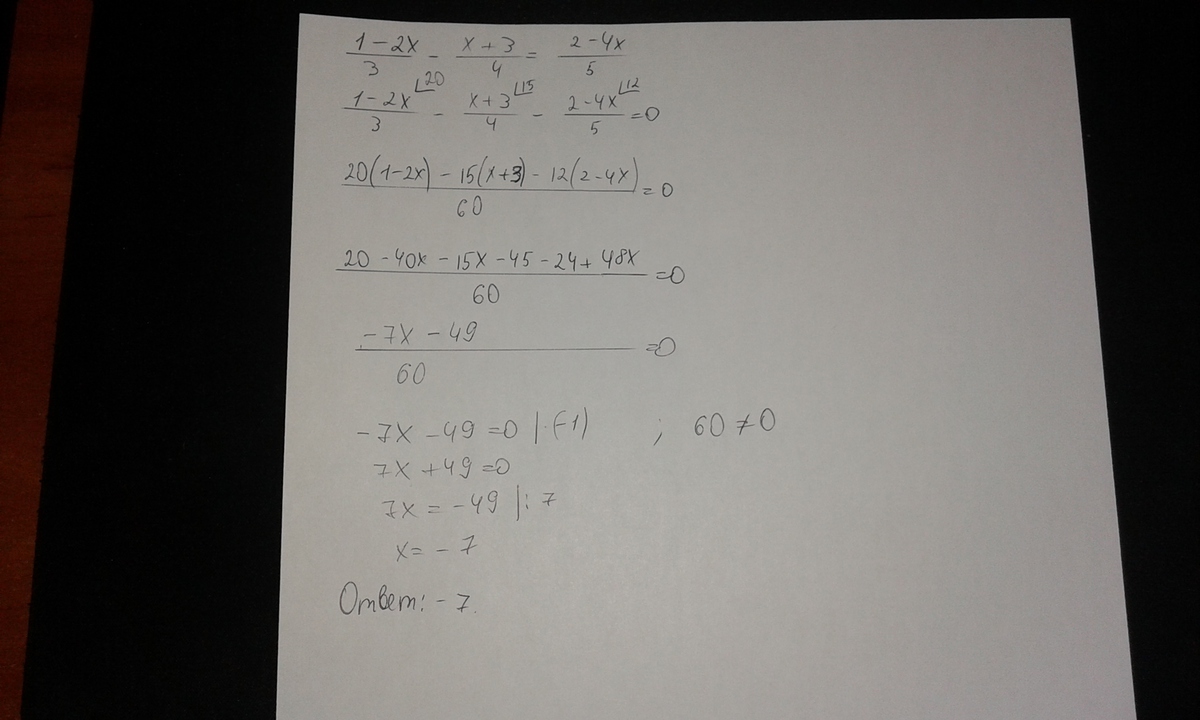 (1-2x)/3 - (x+3)/4 = (2-4x)/5
(1-2x)/3 ⌊20 - (x+3)/4 ⌊15 - (2-4x)/5 ⌊12 =0
(20(1-2x) - 15(x+3) - 12(2-4x))/60 = 0
(20 -40x -15x -45 -24 + 48x)/60 =0
(-7x -49)/60 =0
-7x -49 =0 |·(-1) ; 60 ≠ 0
7x +49 =0
7x = -49 |: 7
x= -7
Ответ: -7.